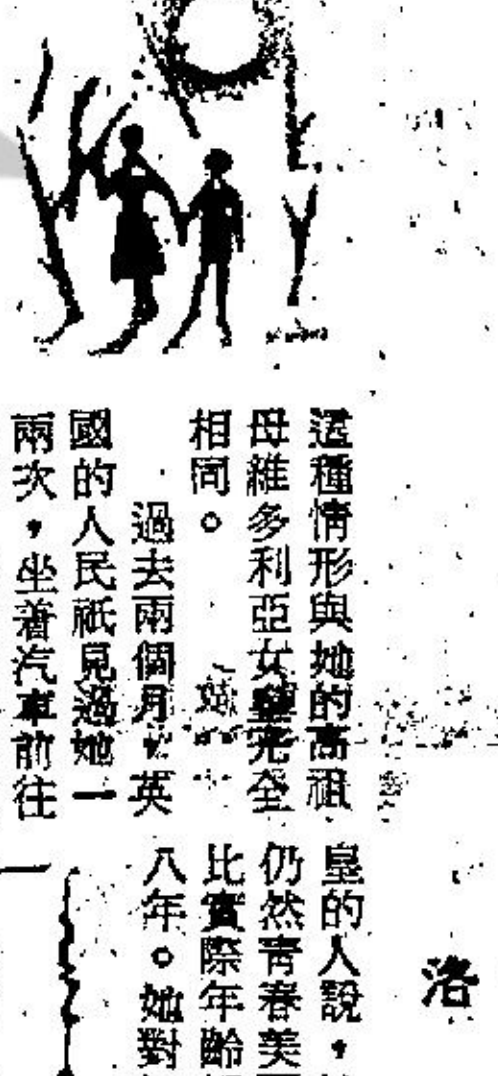 這種情形與她的高祖
母維多利亞女皇完全
相同。
過去兩個月，英
國的人民祇見過她一
兩次，坐着汽車前往
洛
皇的人說，
仍然青春美
比實際年齡
八年。她對